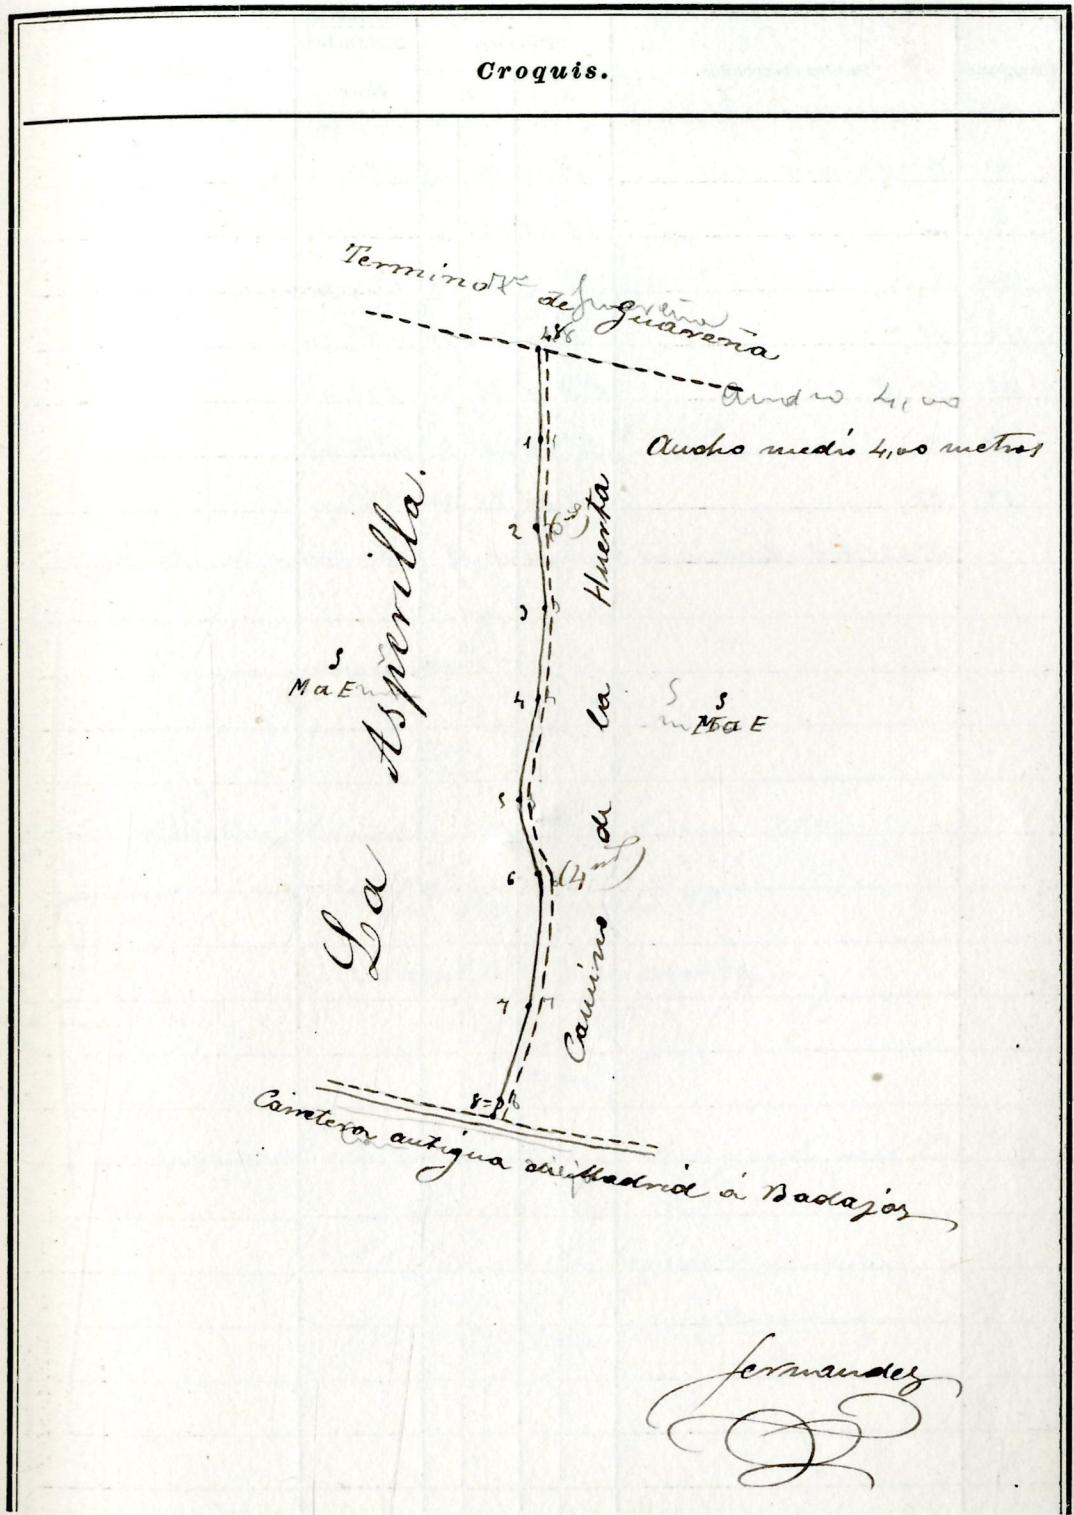 Croquis.
Termino de Guareña
Ancho 4,00
Ancho medio 4,00 metros
1
2
3
4
5
6
7
La Asperilla.
Camino de la Huerta
S
M a E
S
M a E
Carretera antigua de Madrid á Badajoz
Fernandez